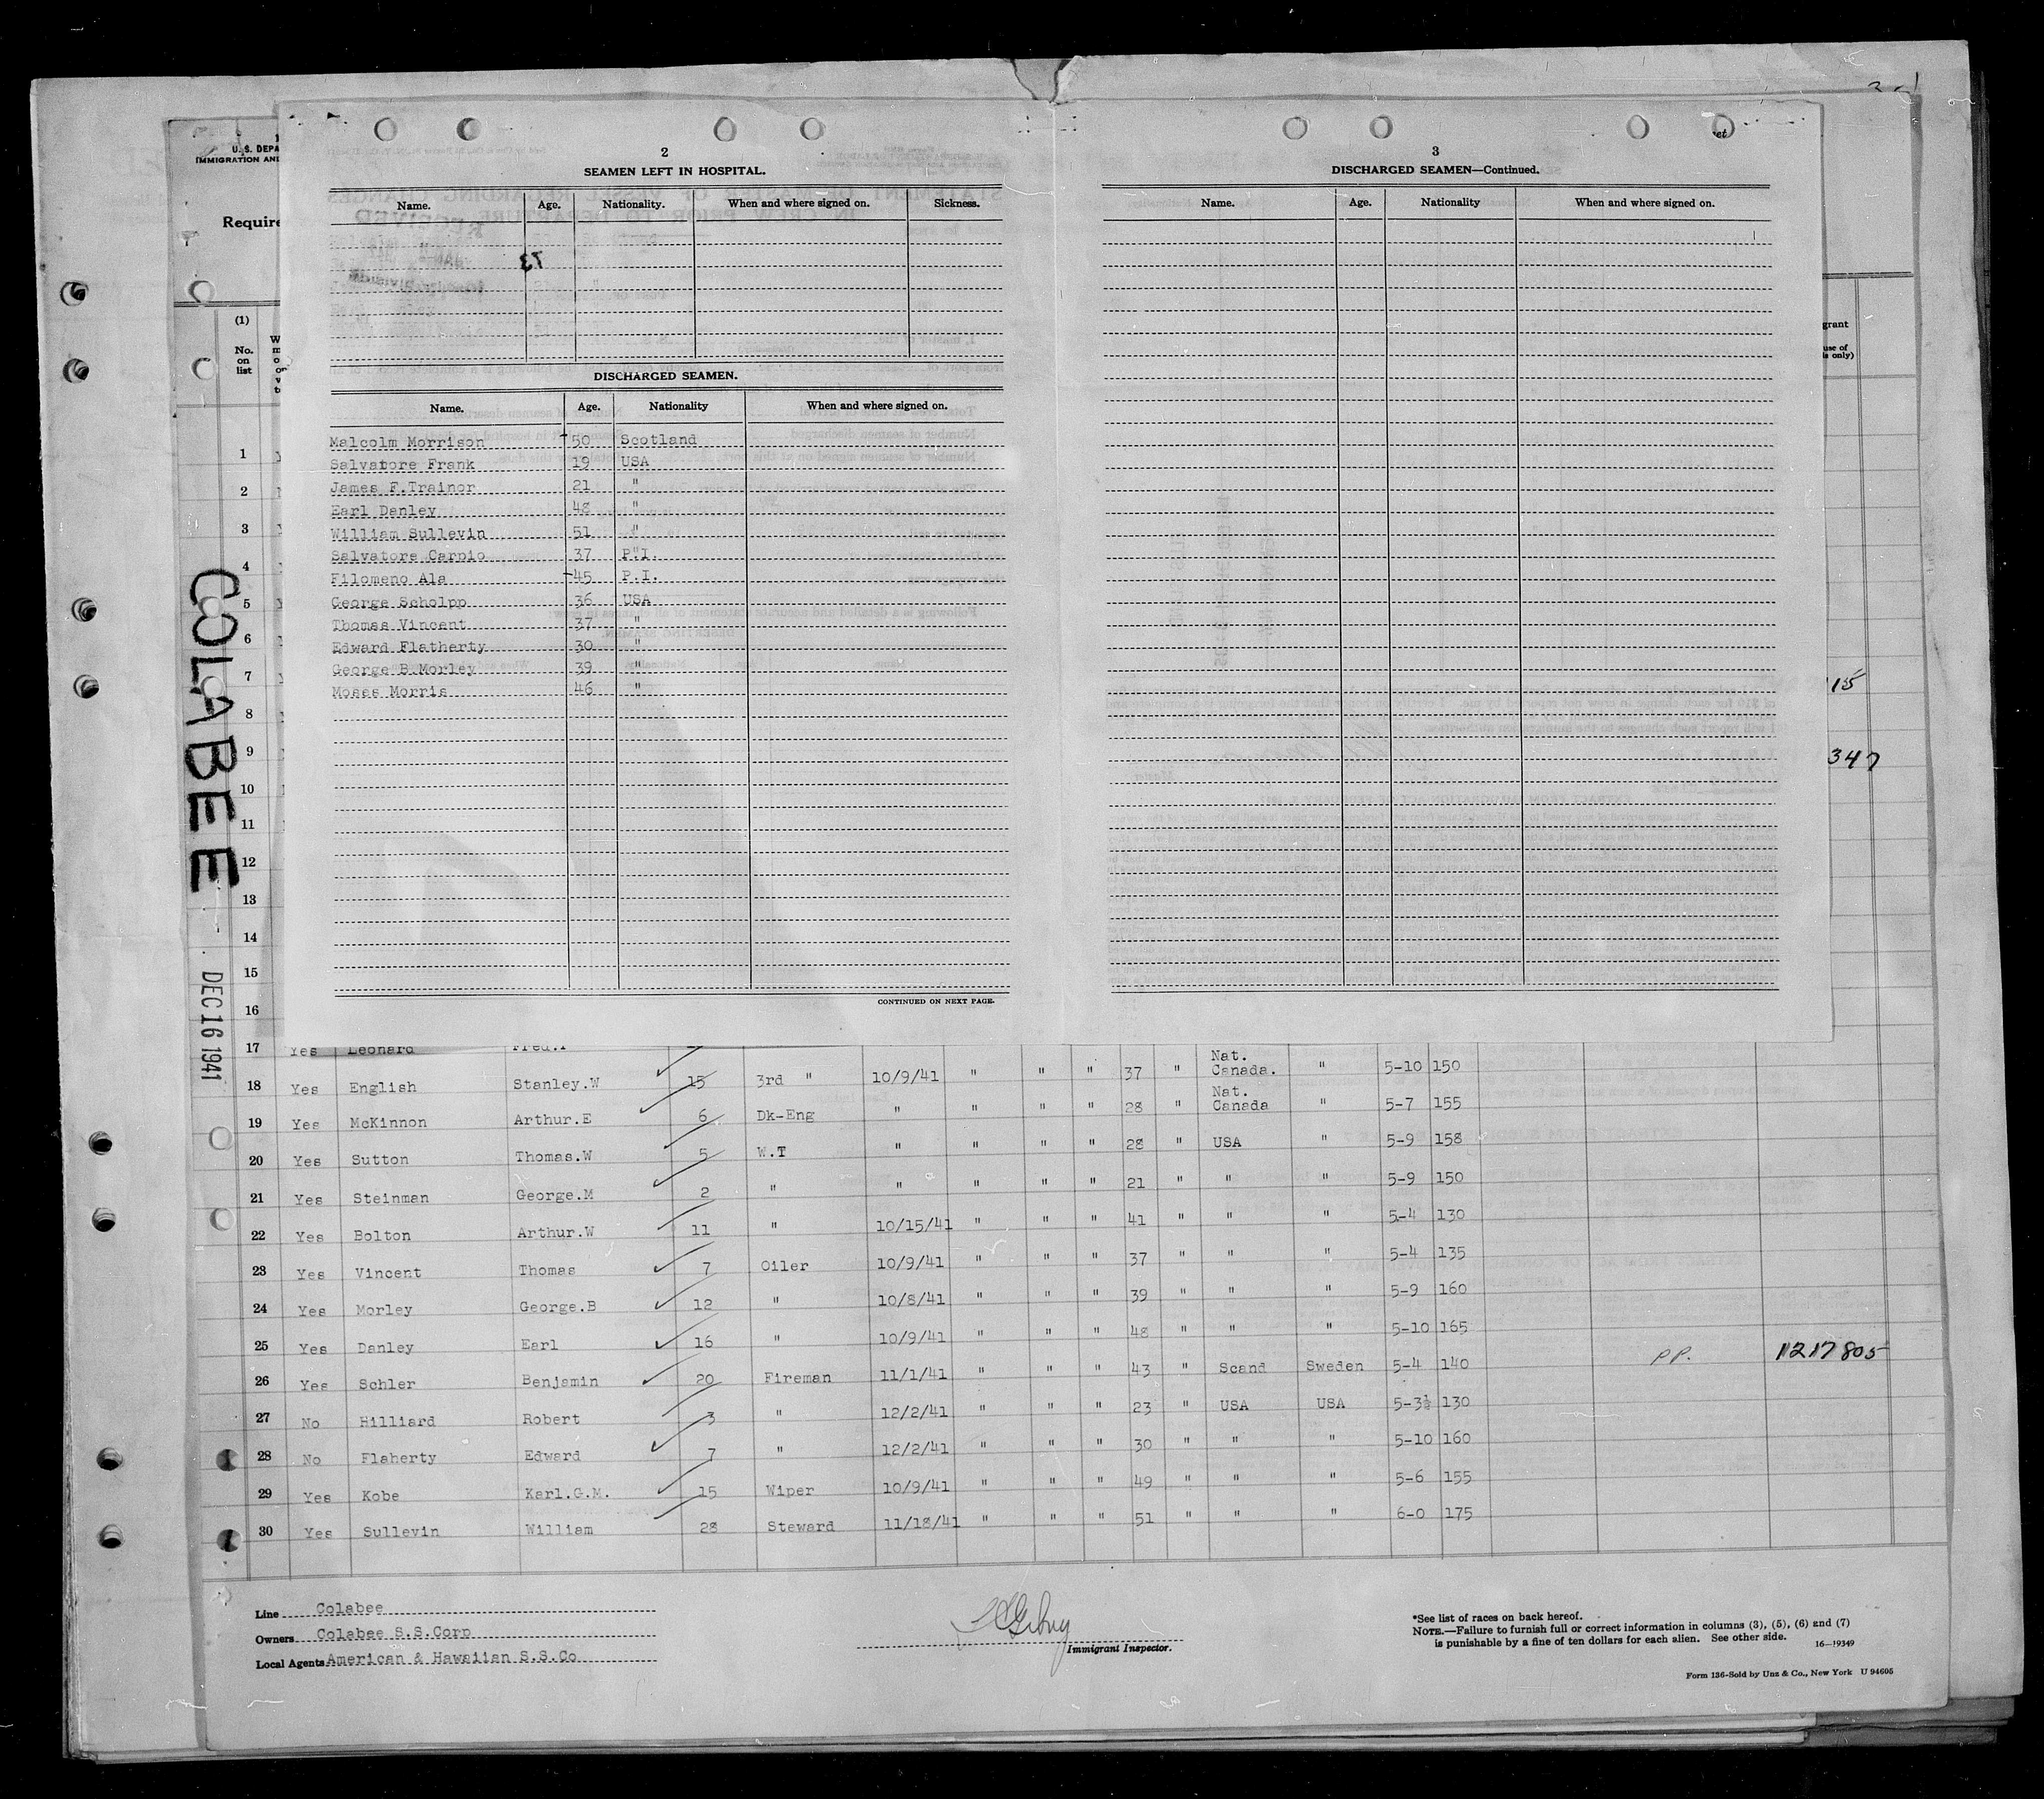 U.S. DEPA
IMMIGRATION AND
Require
(1)
No.
on
list
COLABEE
DEC 16 1941
2
SEAMEN LEFT IN HOSPITAL.
Name. Age. Nationality. When and where signed on. Sickness.
DISCHARGED SEAMEN.
Name. Age. Nationality When and where signed on.
Malcolm Morrison 50 Scotland
Salvatore Frank 19 USA
James F.Trainor 21 "
Earl Danley 48 "
William Sullevin 51 "
Salvatore Carpio 37 P.I.
Filomeno Ala 45 P.I.
George Scholpp 36 USA
Thomas Vincent 37 "
Edward Flatherty 30 "
George B.Morley 39 "
Moses Morris 46 "
CONTINUED ON NEXT PAGE.
3
DISCHARGED SEAMEN—Continued.
Name. Age. Nationality When and where signed on.
grant
use of
ls only)
15
347
1
2
3
4
5
6
7
8
9
10
11
12
13
14
15
16
17 Yes Leonard Fred.
18 Yes English Stanley.W 15 3rd " 10/9/41 " " " 37 " Nat. Canada. " 5-10 150
19 Yes McKinnon Arthur.E 6 Dk-Eng " " " " 28 " Nat. Canada " 5-7 155
20 Yes Sutton Thomas.W 5 W.T " " " " 28 " USA " 5-9 158
21 Yes Steinman George.M 2 " " " " " 21 " " " 5-9 150
22 Yes Bolton Arthur.W 11 " 10/15/41 " " " 41 " " " 5-4 130
23 Yes Vincent Thomas 7 Oiler 10/9/41 " " " 37 " " " 5-4 135
24 Yes Morley George.B 12 " 10/8/41 " " " 39 " " " 5-9 160
25 Yes Danley Earl 16 " 10/9/41 " " " 48 " " " 5-10 165
26 Yes Schler Benjamin 20 Fireman 11/1/41 " " " 43 " Scand Sweden 5-4 140 PP. 1217805
27 No Hilliard Robert 3 " 12/2/41 " " " 23 " USA USA 5-3½ 130
28 No Flaherty Edward 7 " 12/2/41 " " " 30 " " " 5-10 160
29 Yes Kobe Karl.G.M. 15 Wiper 10/9/41 " " " 49 " " " 5-6 155
30 Yes Sullevin William 28 Steward 11/18/41 " " " 51 " " " 6-0 175
Line Colabee
Owners Colabee S.S.Corp
Local Agents American & Hawaiian S.S.Co
Immigrant Inspector.
*See list of races on back hereof.
NOTE.—Failure to furnish full or correct information in columns (3), (5), (6) and (7)
is punishable by a fine of ten dollars for each alien. See other side.
16—19349
Form 136-Sold by Unz & Co., New York U 94605